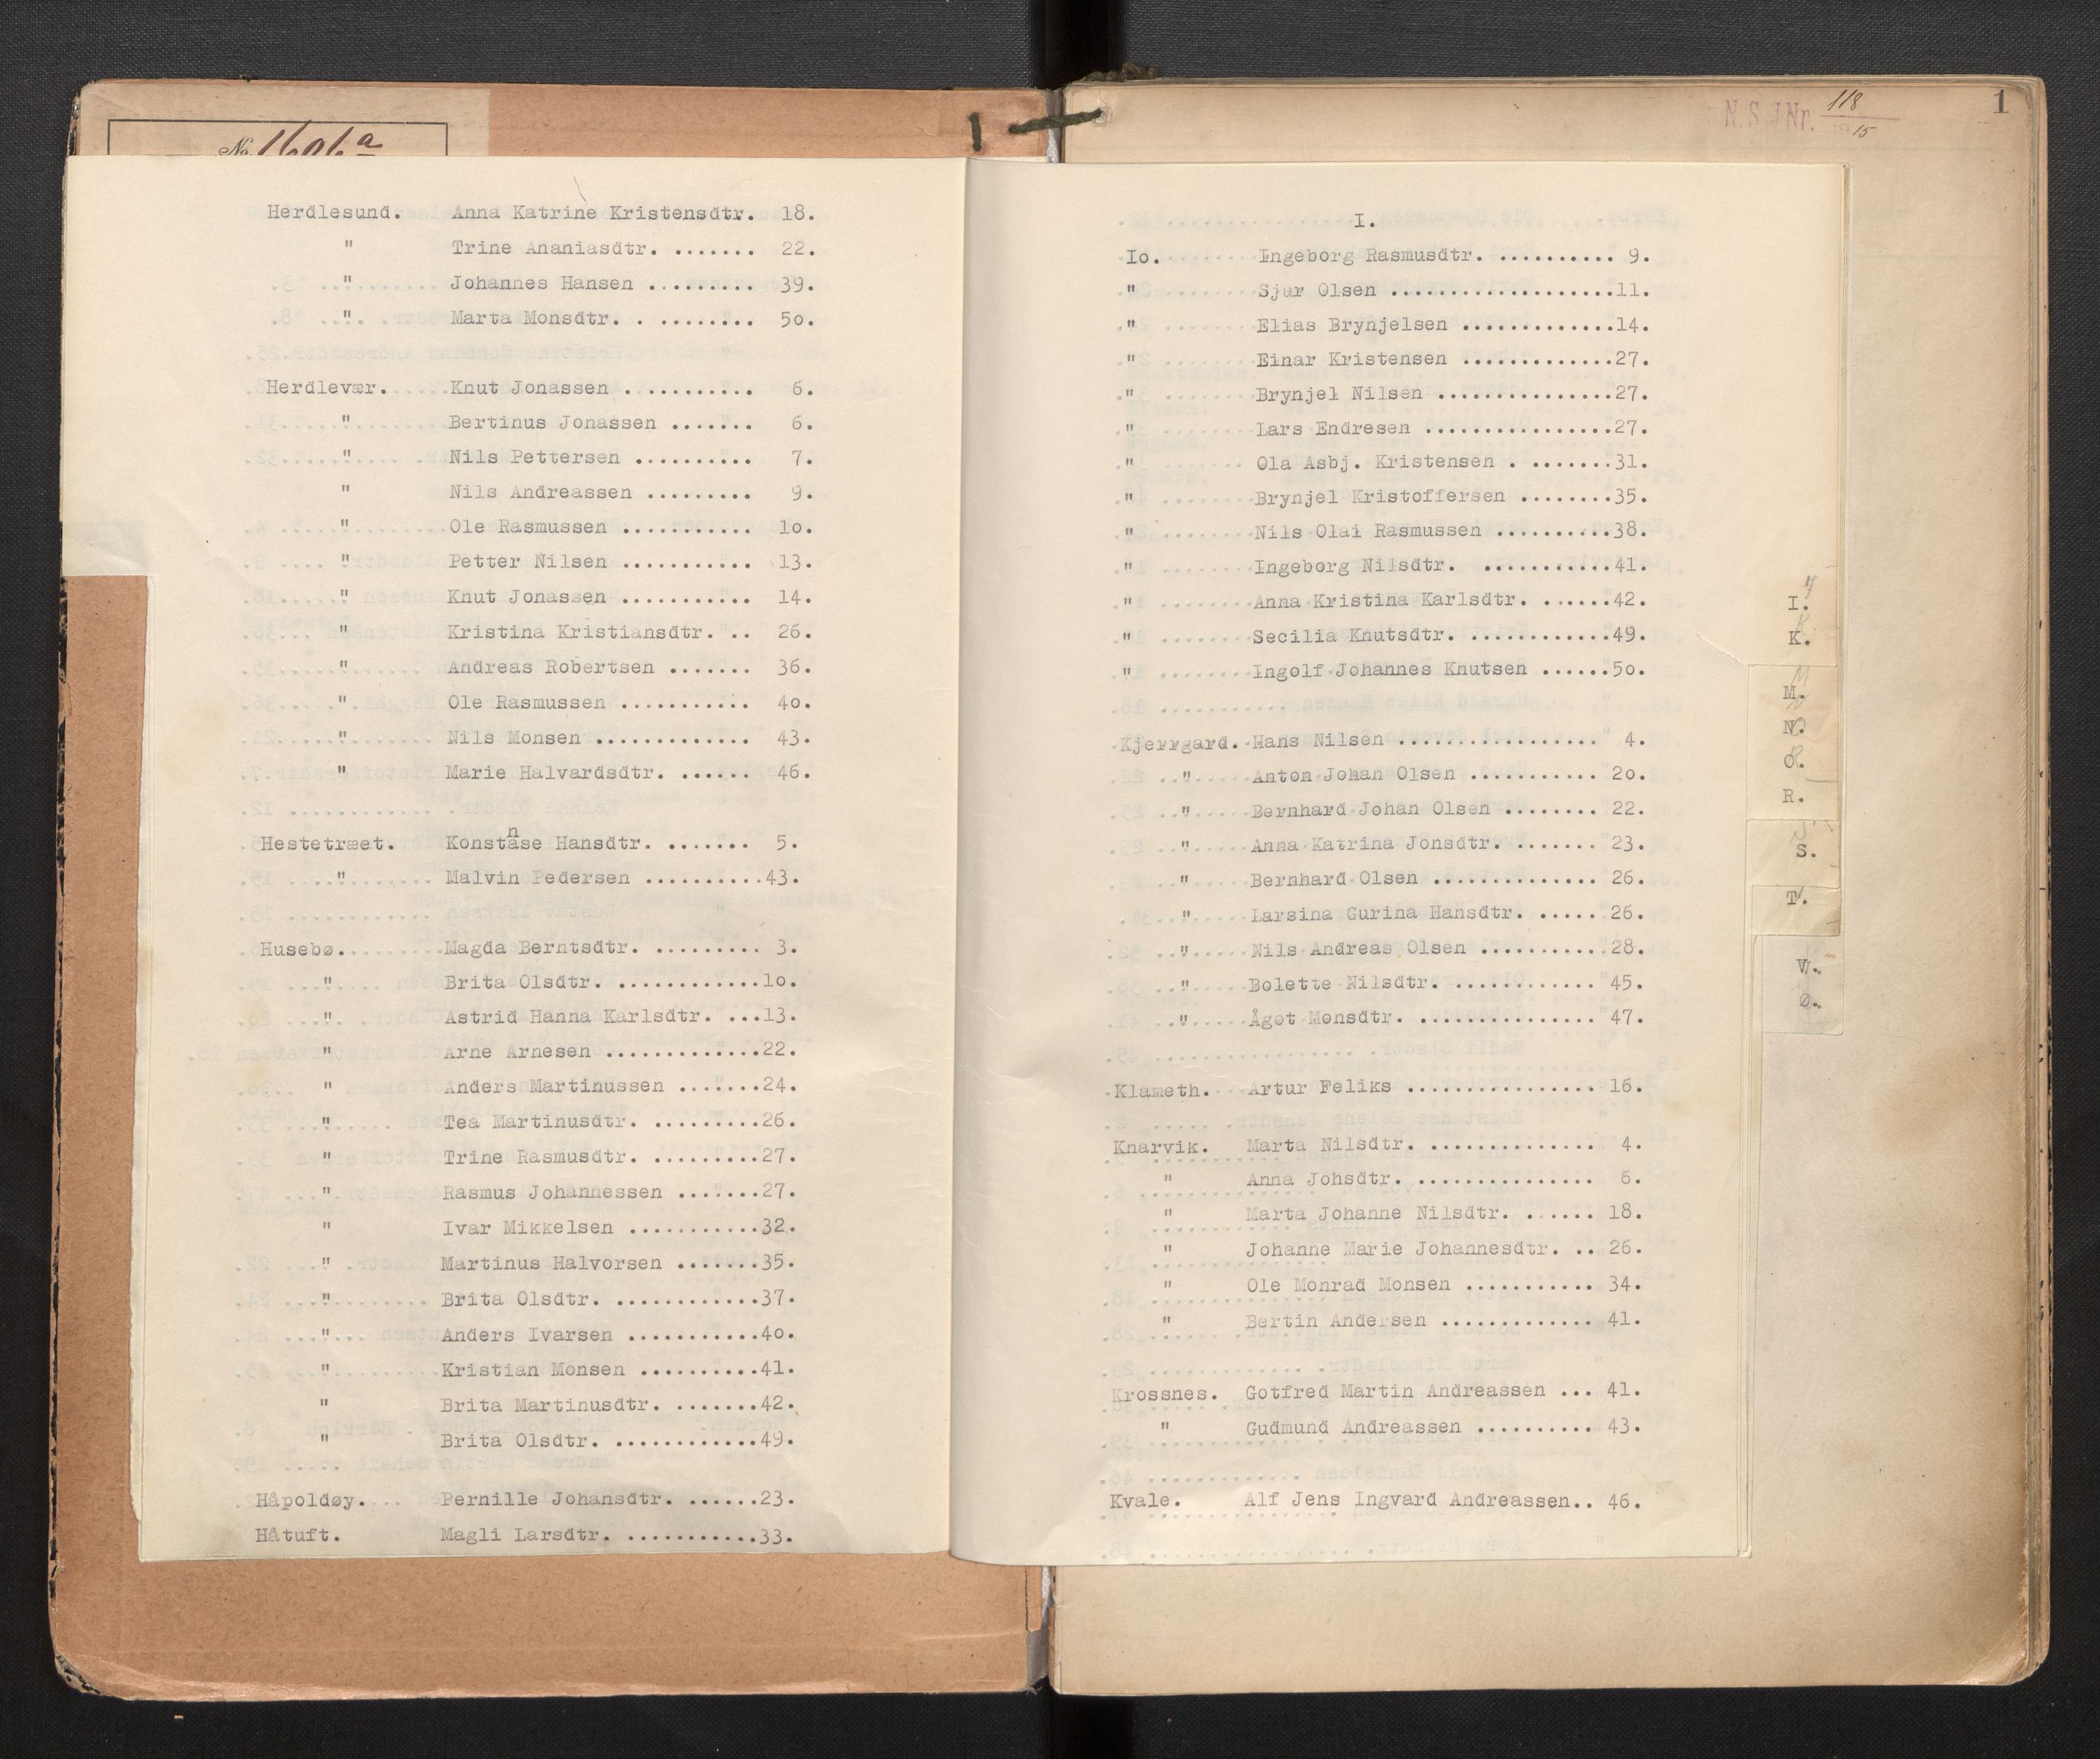 No 1606a
Herdlesund. Anna Katrine Kristensdtr. 18.
" Trine Ananiasdtr. ....... 22.
" Johannes Hansen ......... 39.
" Marta Monsdtr. . ........ 5o.
Herdlevær. Knut Jonassen ........... 6.
" Bertinus Jonassen ....... 6.
" Nils Pettersen .......... 7.
" Nils Andreassen ......... 9.
" Ole Rasmussen ........... 1o.
" Petter Nilsen ........... 13.
" Knut Jonassen ........... 14.
" Kristina Kristiansdtr. .. 26.
" Andreas Robertsen ....... 36.
" Ole Rasmussen ........... 4o.
" Nils Monsen ............. 43.
" Marie Halvardsdtr. ...... 46.
Hestetræet. Konstanse Hansdtr. ....... 5.
" Malvin Pedersen ..........43.
Husebø. Magda Berntsdtr. ......... 3.
" Brita Olsdtr. ............1o.
" Astrid Hanna Karlsdtr. ...13.
" Arne Arnesen .............22.
" Anders Martinussen .......24.
" Tea Martinusdtr. .........26.
" Trine Rasmusdtr. .........27.
" Rasmus Johannessen .......27.
" Ivar Mikkelsen ...........32.
" Martinus Halvorsen .......35.
" Brita Olsdtr. ............37.
" Anders Ivarsen ...........4o.
" Kristian Monsen ..........41.
" Brita Martinusdtr. .......42.
" Brita Olsdtr. ............49.
Håpoldøy. Pernille Johansdtr. ......23.
Håtuft. Magli Larsdtr. ...........33.
N.S.JNr. 118
1915
1
I.
Io. Ingeborg Rasmusdtr. .......... 9.
" Sjur Olsen ...................11.
" Elias Brynjelsen .............14.
" Einar Kristensen .............27.
" Brynjel Nilsen ...............27.
" Lars Endresen ................27.
" Ola Asbj. Kristensen . .......31.
" Brynjel Kristoffersen ........35.
" Nils Olai Rasmussen ..........38.
" Ingeborg Nilsdtr. ...........41.
" Anna Kristina Karlsdtr. ......42.
" Secilia Knutsdtr. ............49.
" Ingolf Johannes Knutsen ......5o.
Kjerrgard. Hans Nilsen ................. 4.
" Anton Johan Olsen ........... 2o.
" Bernhard Johan Olsen ........ 22.
" Anna Katrina Jonsdtr. ....... 23.
" Bernhard Olsen .............. 26.
" Larsina Gurina Hansdtr. ..... 26.
" Nils Andreas Olsen ...........28.
" Bolette Nilsdtr. ............ 45.
" Ågot Monsdtr. ............... 47.
Klameth. Artur Feliks ................ 16.
Knarvik. Marta Nilsdtr. .............. 4.
" Anna Johsdtr. ............... 6.
" Marta Johanne Nilsdtr. ...... 18.
" Johanne Marie Johannesdtr. .. 26.
" Ole Monrad Monsen ........... 34.
" Bertin Andersen ............. 41.
Krossnes. Gotfred Martin Andreassen ... 41.
" Gudmund Andreassen .......... 43.
Kvale. Alf Jens Ingvard Andreassen.. 46.
I.
K.
M.
N.
O.
R.
S.
T.
V.
Ø.